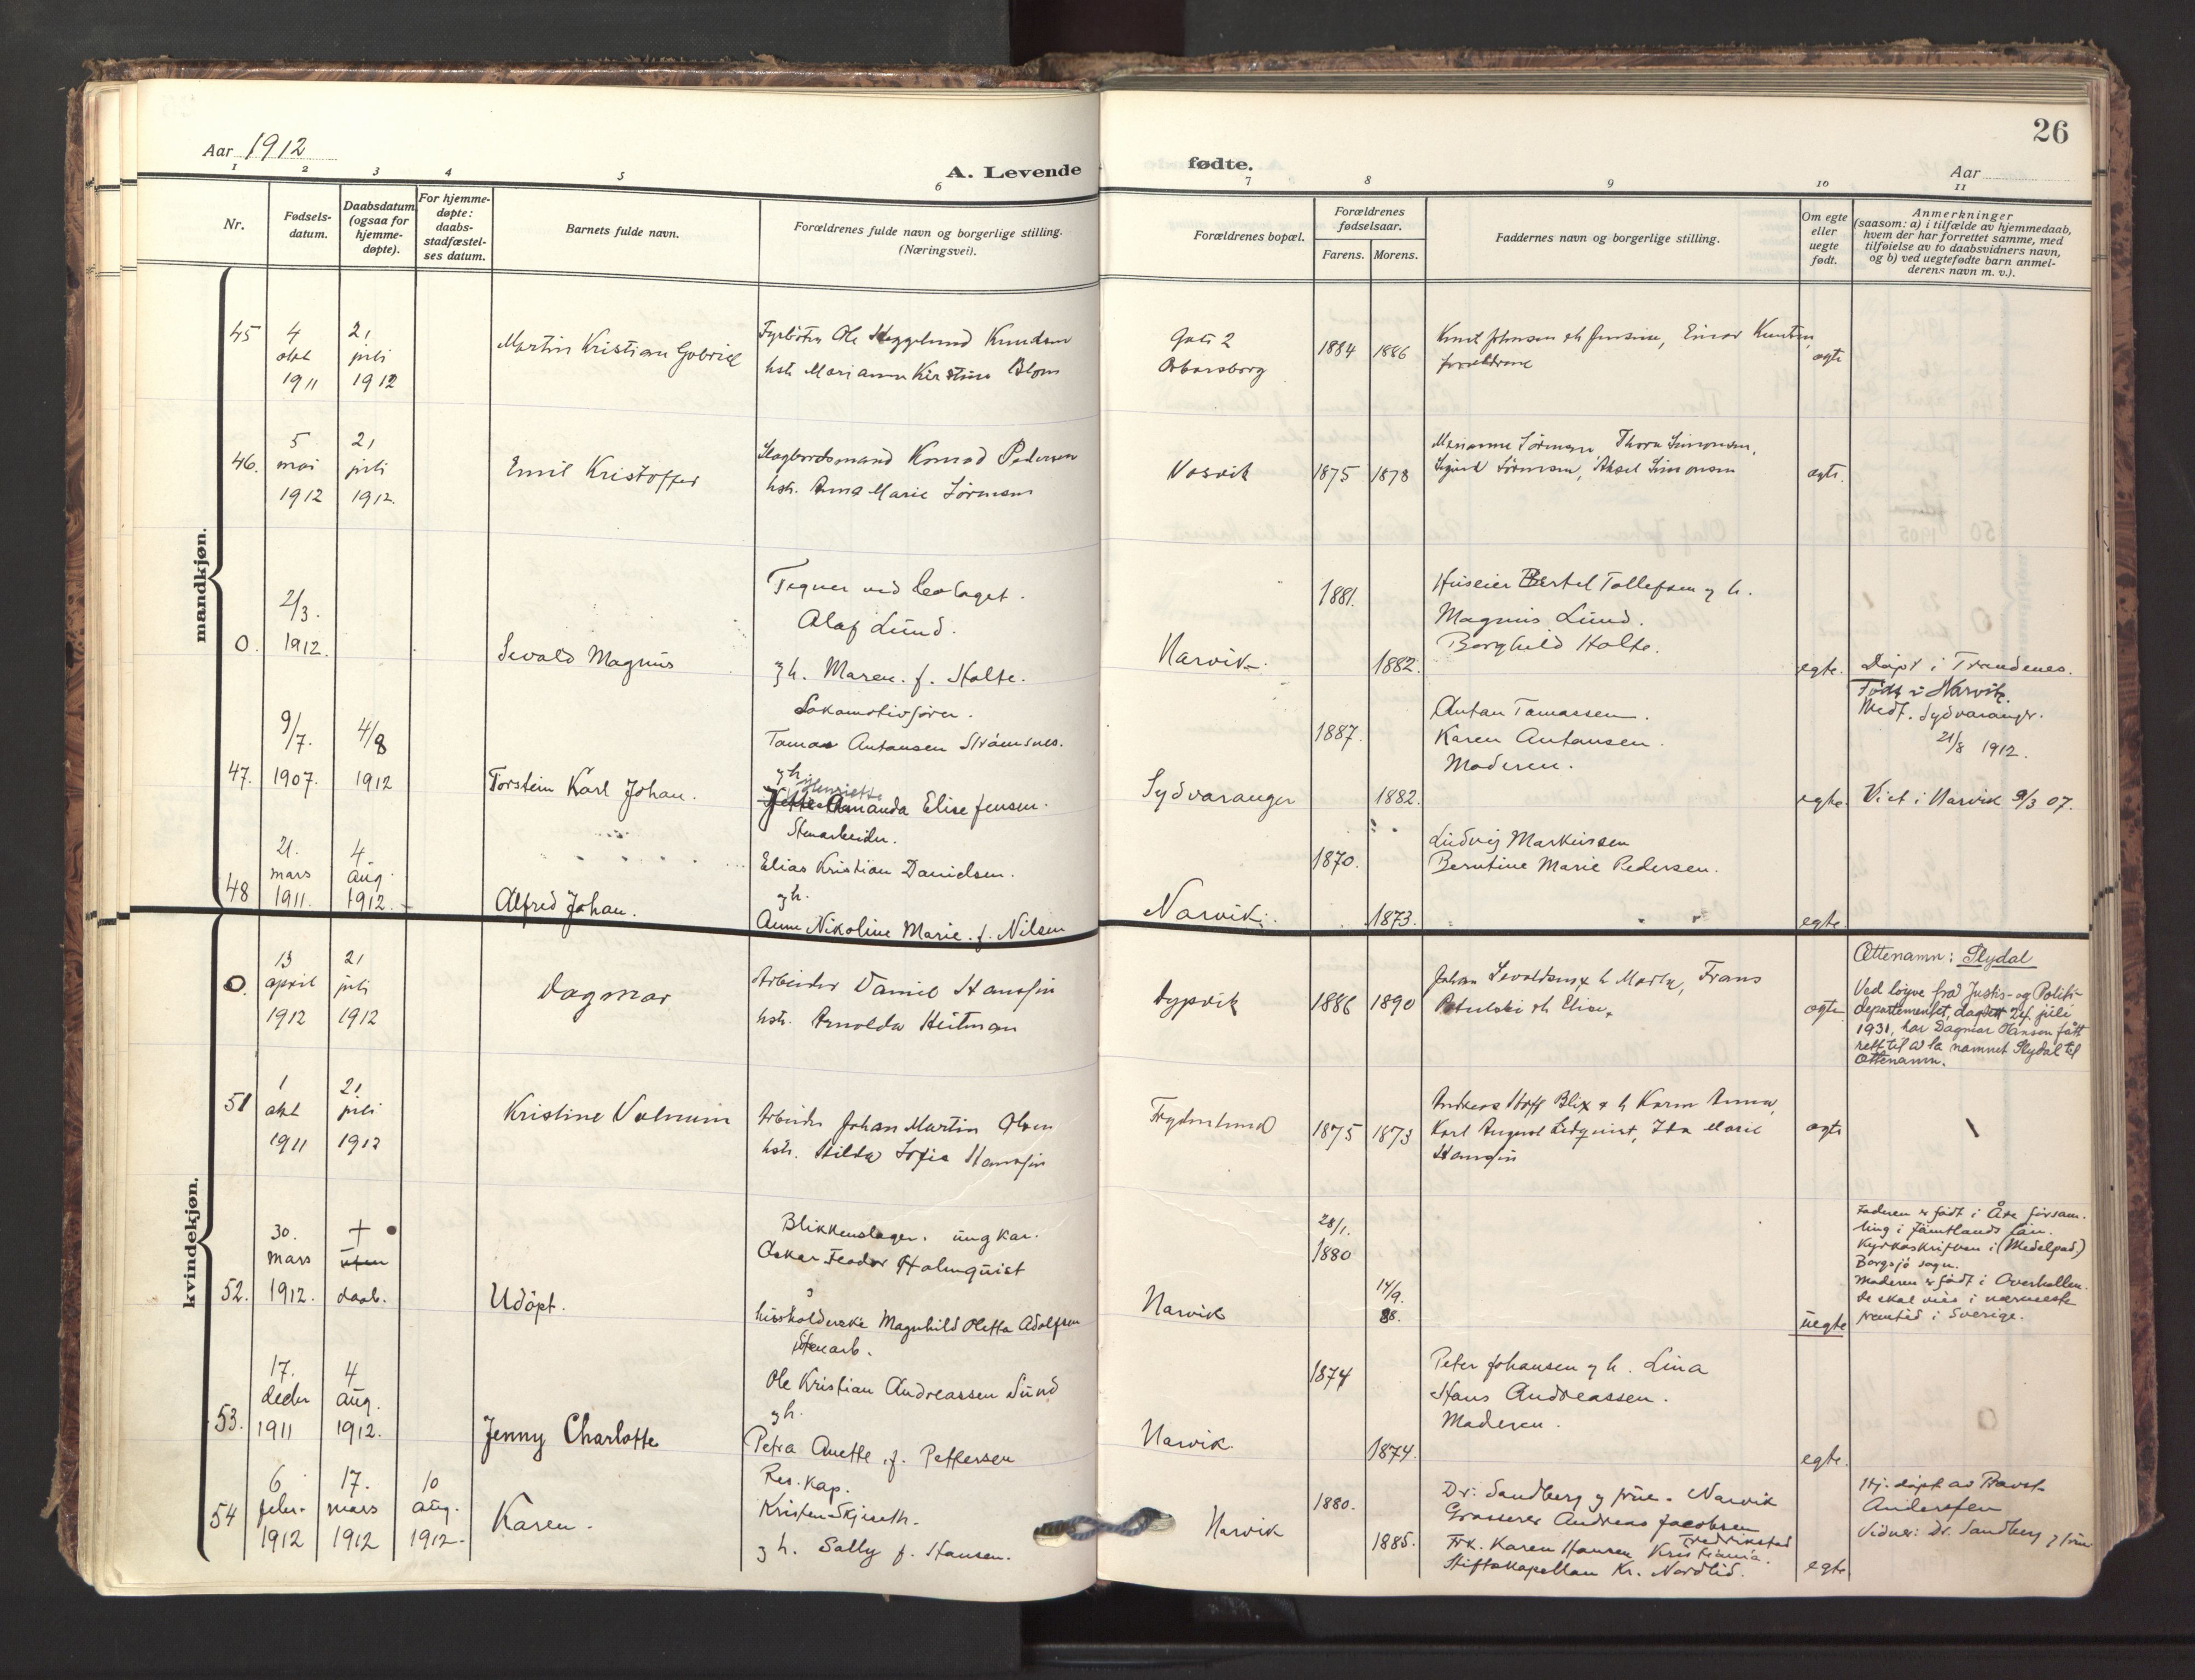 26
Aar 1912
A. Levende
fødte.
Aar
1 2 3 4 5 6 7 8 9 10 11
Nr.
Fødsels-
datum.
Daabsdatum
(ogsaa for
hjemme-
døpte).
For hjemme-
døpte:
daabs-
stadfæstel-
ses datum.
Barnets fulde navn.
Forældrenes fulde navn og borgerlige stilling.
(Næringsvei).
Forældrenes bopæl.
Forældrenes
fødselsaar.
Farens. Morens.
Faddernes navn og borgerlige stilling.
Om egte
eller
uegte
født.
Anmerkninger
(saasom: a) i tilfælde av hjemmedaab,
hvem der har forrettet samme, med
tilføielse av to daabsvidners navn,
og b) ved uegtefødte barn anmel-
derens navn m. v.).
mandkjøn.
45
4
okt
1911
21
juli
1912
Martin Kristian Gabriel
Fyrbøter Ole Heggelund Knudsen
hstr Marianne Kirstine Blom
Gate 2
1884 1886
egte
46.
5
mai
1912
21
juli
1912.
Emil Kristoffer
Konrad Pedersen
hstr. Anna Marie Sørensen
Vasvik
1875 1878
Marianne Sørensen, Thora Simonsen,
Sigurd Sørensen, Aksel Simonsen
egte.
0.
2/3.
1912.
Sevald Magnus
Tegner ved
Olaf Lund.
g h. Maren. f. Holte.
Narvik.
1881.
1882.
Huseier Bertel Tollefsen g h.
Magnus Lund.
Borghild Holte.
egte.
Døpt i Trondenes.
Født i Narvik.
Medt. Sydvaranger.
21/8 1912.
47.
9/7.
1907.
4/8
1912
Torstein Karl Johan.
Lokomotivfører.
Tomas Antonsen Strømsnes.
g h.
Henriette
Amanda Elise Jensen.
Sydvaranger
1887.
1882.
Anton Tomassen.
Karen Antonsen.
Moderen.
egte.
Viet i Narvik 9/3 07.
48
21.
mars
1911.
4
aug.
1912.
Alfred Johan.
Stenarbeider.
Elias Kristian Danielsen.
g h.
Anna Nikoline Marie. f. Nilsen
Narvik.
1870.
1873.
Ludvig Markussen
Berntine Marie Pedersen.
egte.
kvindekjøn.
0.
13
april
1912
21
juli
1912
Dagmar
Arbeider Daniel Hansen
hstr. Arnolda Heitman
Dypvik
1886 1890
egte
Ættenamn: Slydal
Ved løyve frå Justis- og Politi-
departementet, dagsett 24. juli
1931, har Dagmar Hansen fått
rett til å ta namnet Slydal til
Ættenamn.
51
1
okt
1911
21
juli
1912
Kristine
Arbeider Johan Martin Olsen
hstr. Hilda Sofie Hansen
Frydenlund
1875 1873
Andreas Hoff Blix & h Karen Anna,
Karl August Lidquist, Ida Marie
Hansen
egte
52.
30.
mars
1912.
+
uten
daab.
Udöpt.
Blikkenslager. ungkar.
Oskar Teodor Holmquist
husholderske Magnhild Oletta Adolfsen
Narvik
28/1.
1880
14/9.
88.
uegte
Faderen er født i Åre försam-
ling i Jämtlands län.
Kyrkoskriften i (Medelpad)
Borgsjö sogn.
Moderen er født i Overhallen.
De skal vies i nærmeste
fremtid i Sverige.
53.
17.
decbr
1911
4
aug.
1912.
Jenny Charlotte
Stenarb.
Ole Kristian Andreassen Sund
g h.
Petra Anette. f. Pettersen
Narvik.
1874
1874.
Peter Johansen g h. Lina
Hans Andreassen.
Moderen.
egte.
54
6
febr.
1912
17.
mars
1912
10
aug.
1912.
Karen.
Res. kap.
Kristen Skjeseth.
g h. Sally f. Hansen.
Narvik
1880.
1885.
Dr. Sandberg g frue. Narvik
Grosserer Andreas Jacobsen
Fredrikstad
Frk. Karen Hansen Kristiania.
Stiftskapellan Kr. Nordlid.
egte
Hj. døpt av Provst
Anderssen
Vidner: Dr. Sandberg g frue